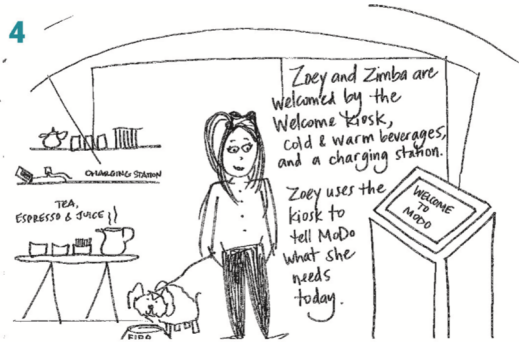 4
Zoey and Zimba are
welcomed by the
Welcome Kiosk,
cold & warm beverages,
and a charging station.
Zoey uses the
kiosk to
tell MoDo
what she
needs
today.
CHARGING STATION
TEA,
ESPRESSO & JUICE
WELCOME
TO
MODO
FIDO